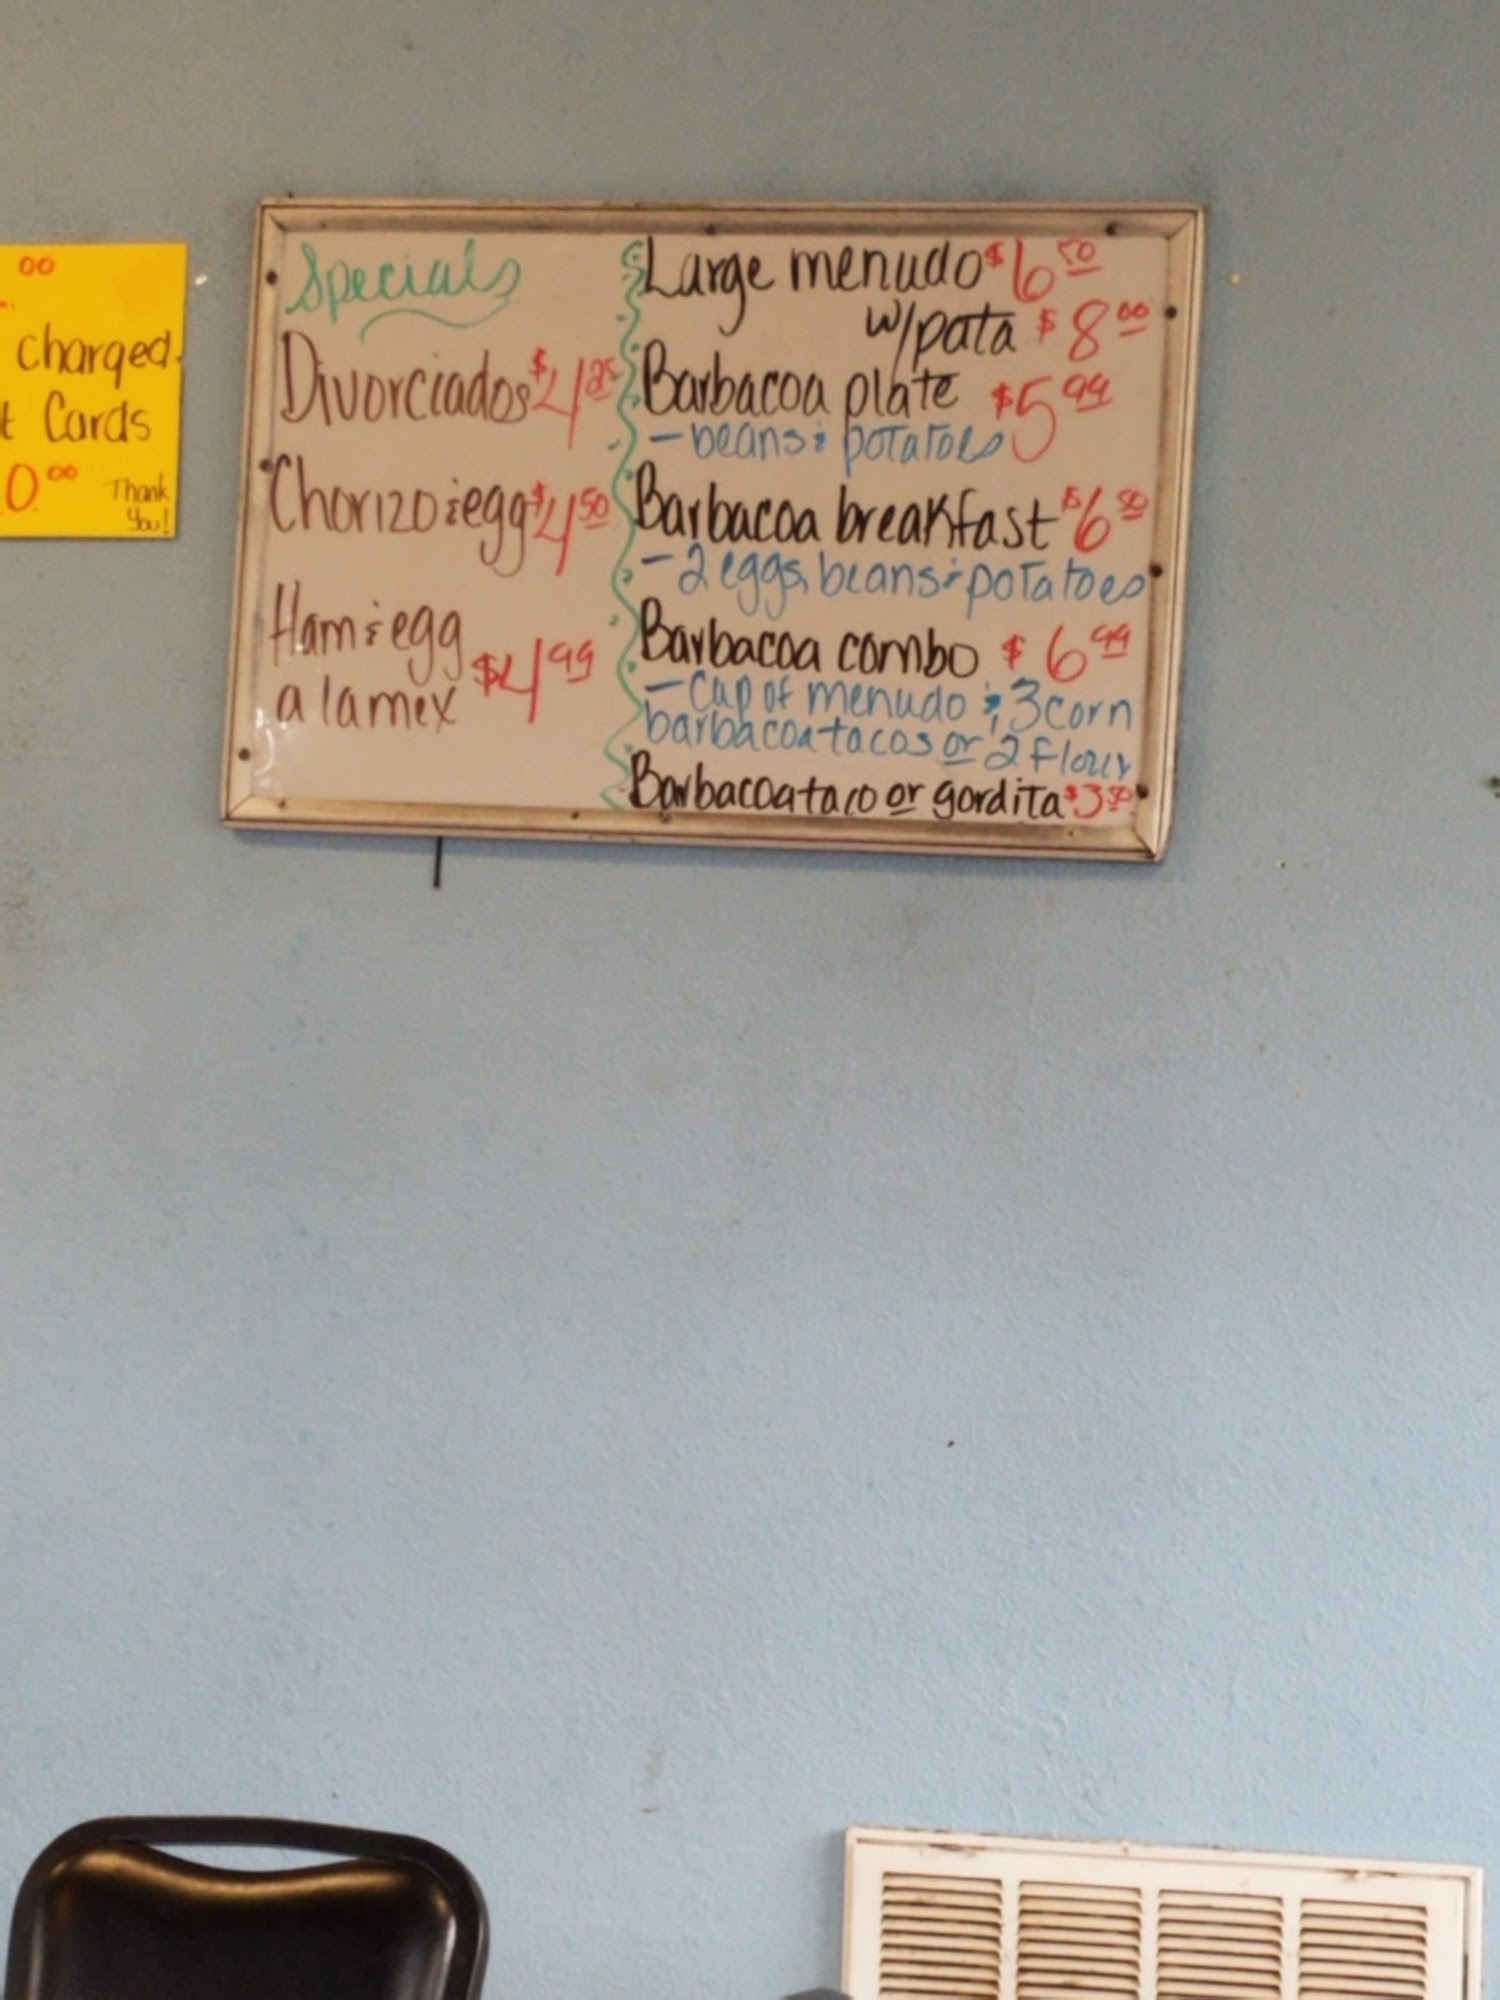 00
charged
Cards
0.00 Thank
You!
Specials
Divorciados $4.25
Chorizo & egg $4.50
Ham & egg
a la mex $4.99
Large menudo $6.50
w/pata $8.00
Barbacoa plate $5.99
- beans & potatoes
Barbacoa breakfast $6.50
- 2 eggs, beans & potatoes
Barbacoa combo $6.99
- cup of menudo & 3 corn
barbacoa tacos or 2 flour
Barbacoa taco or gordita $3.50